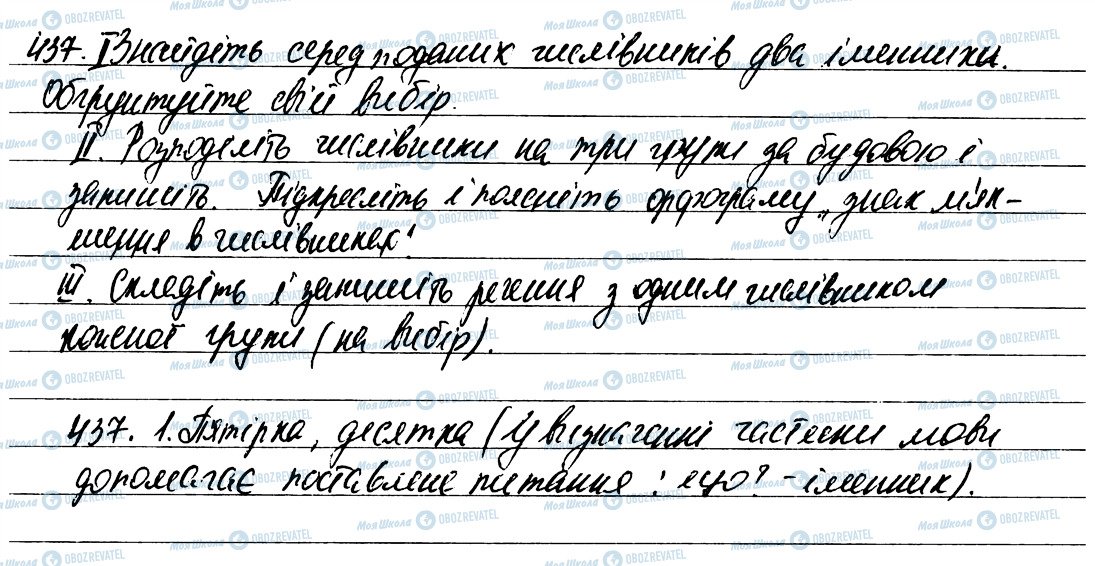 437. І Знайдіть серед поданих числівників два іменники.
Обґрунтуйте свій вибір.
ІІ. Розподіліть числівники на три групи за будовою і
запишіть. Підкресліть і поясніть орфограму „знак м'як-
шення в числівниках".
ІІІ. Складіть і запишіть речення з одним числівником
кожної групи (на вибір).
437. 1. Пятірка, десятка (У визначенні частини мови
допомагає поставлене питання: що? - іменник).